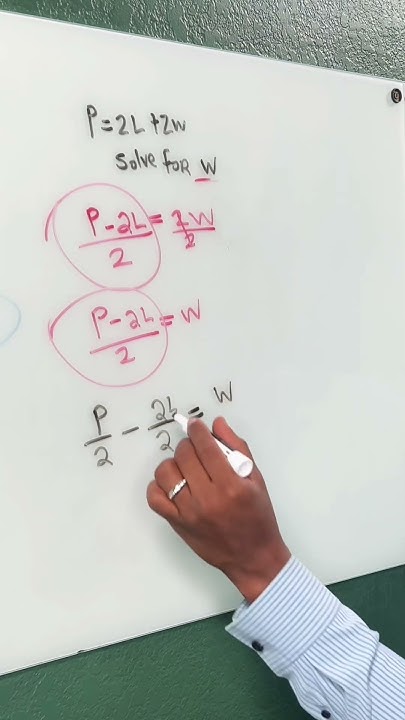 P=2L+2W
Solve for W
P-2L/2 = 2W/2
P-2L/2 = W
P/2 - 2L/2 = W